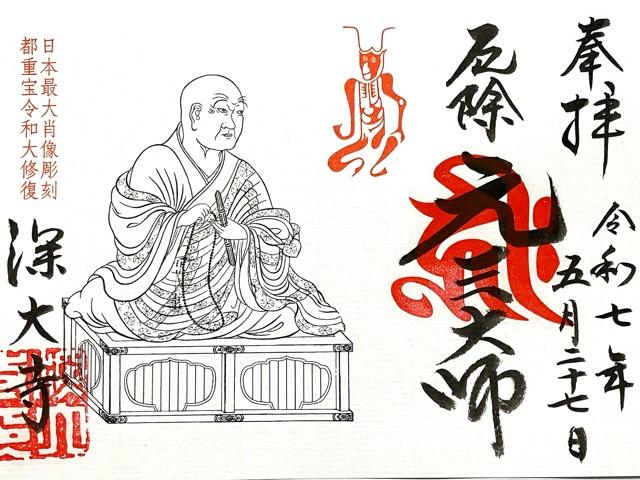 奉拝
令和七年
五月二十七日
厄除
元三大師
日本最大肖像彫刻
都重宝令和大修復
深大寺